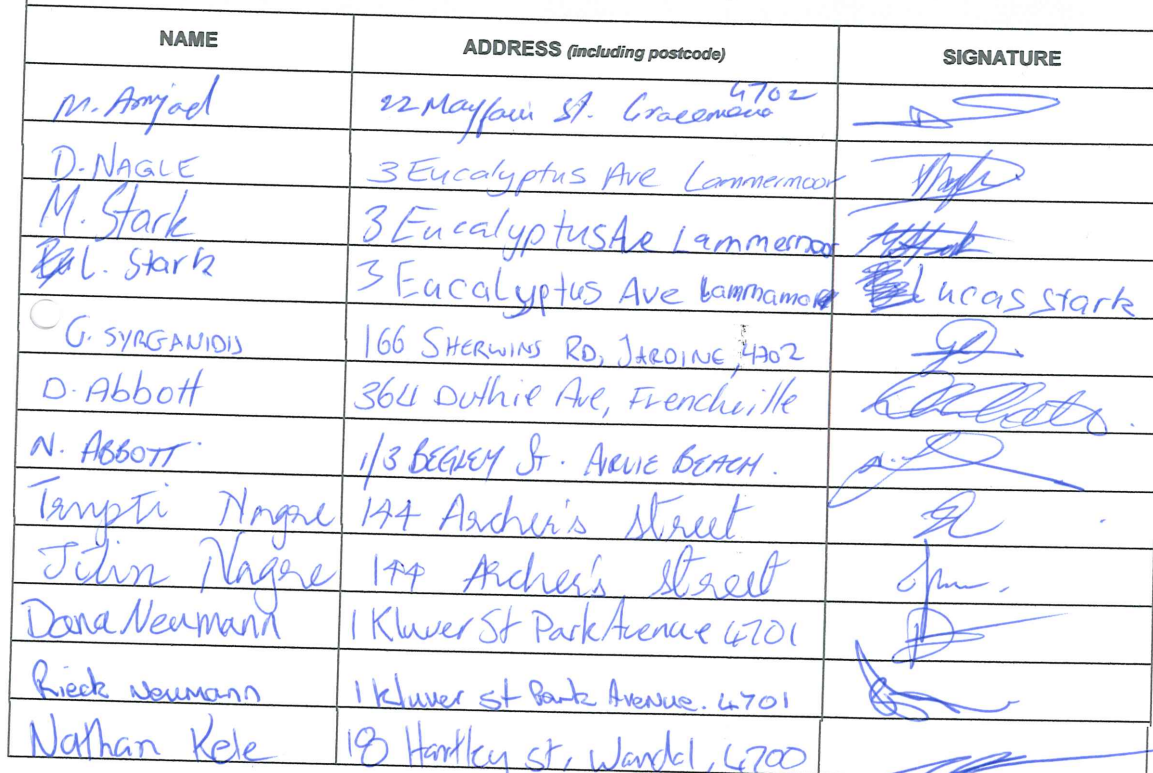 NAME ADDRESS (including postcode) SIGNATURE
M. Amjad 22 Mayfair St. Gracemere 4702
D. NAGLE 3 Eucalyptus Ave Lammermoor
M. Stark 3 Eucalyptus Ave Lammermoor
L. Stark 3 Eucalyptus Ave Lammamoor Lucas Stark
G. SYRGANIDIS 166 SHERWINS RD, JARDINE, 4702
D. Abbott 364 Duthie Ave, Frenchville
N. ABBOTT. 1/3 BEGLEY ST. AIRLIE BEACH.
Nagre 144 Archer's street
Nagre 144 Archer's street
Dana Neumann 1 Kluver St Park Avenue 4701
Rieck Neumann 1 kluver st Park Avenue. 4701
Nathan Kele 18 Hartley st, Wandal, 4700